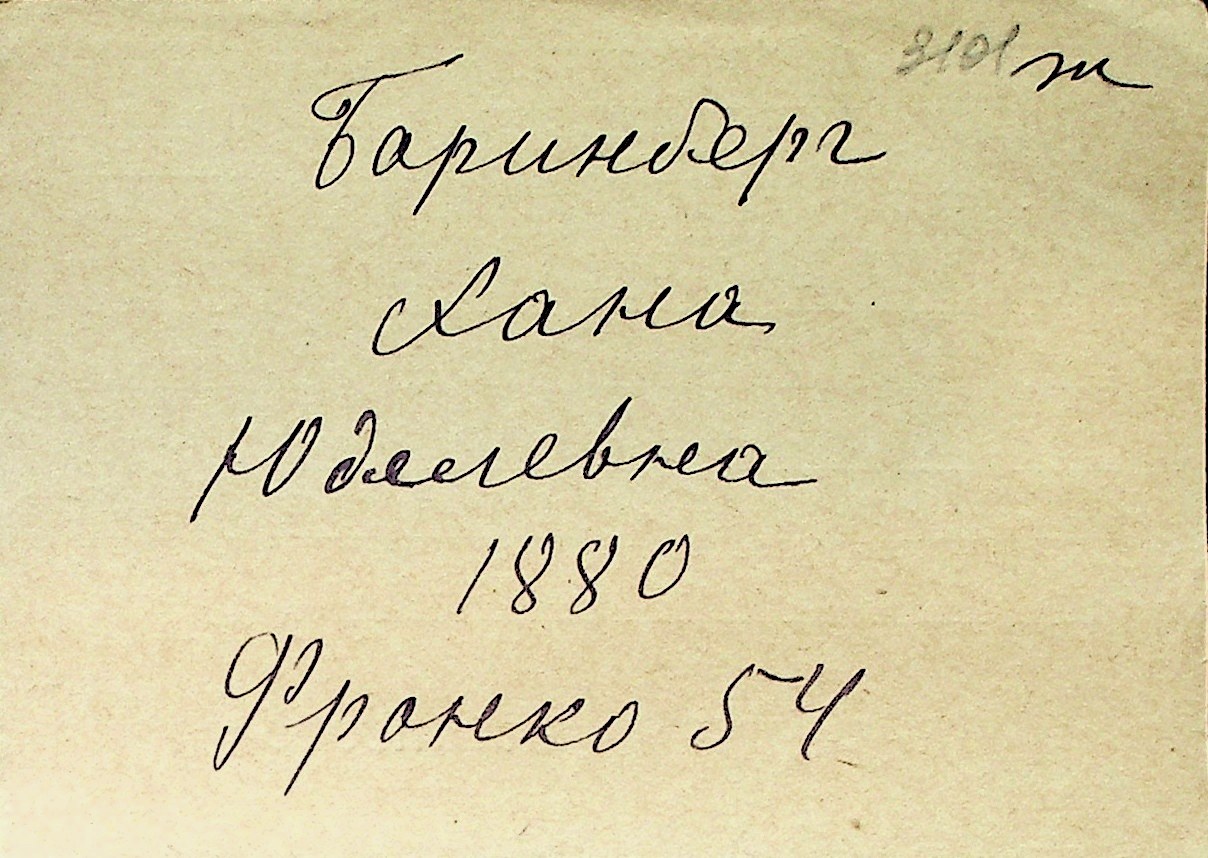 3101 ж
Баринберг
Хана
Юделевна
1880
Франко 54